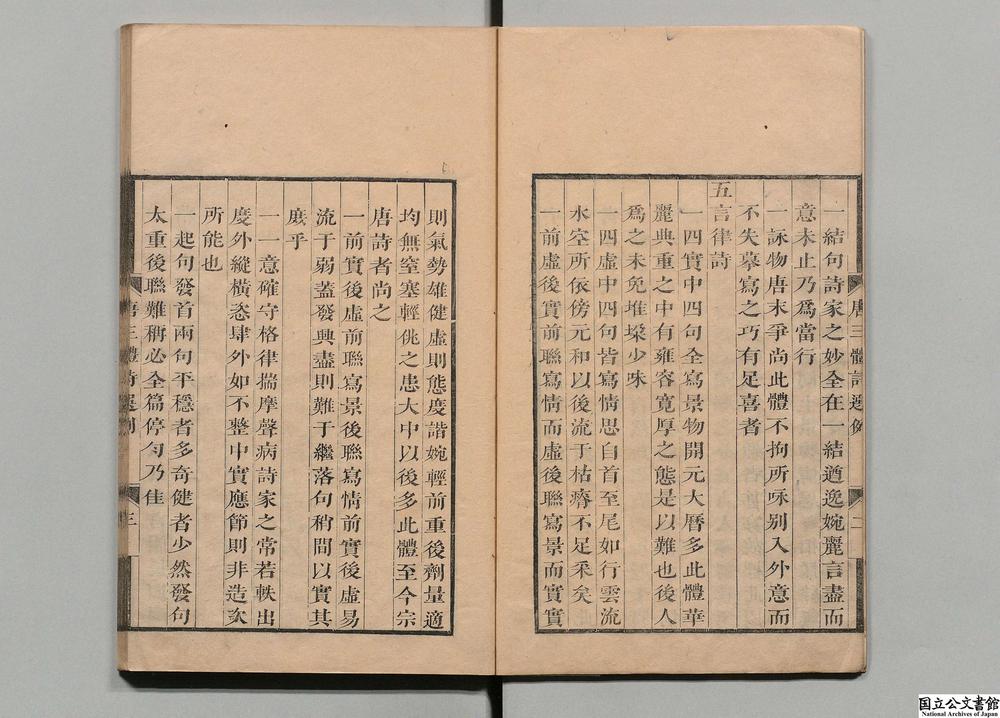 一結句詩家之妙全在一結遒逸婉麗言盡而
意未止乃爲當行
一詠物唐末爭尚此體不拘所咏别入外意而
不失摹寫之巧有足喜者
五言律詩
一四實中四句全寫景物開元大曆多此體華
麗典重之中有雍容寬厚之態是以難也後人
爲之未免堆垜少味
一四虛中四句皆寫情思自首至尾如行雲流
水空所依傍元和以後流于枯瘠不足采矣
一前虛後實前聯寫情而虛後聯寫景而實實
唐三體詩選例
二
則氣勢雄健虛則態度諧婉輕前重後劑量適
均無窒塞輕佻之患大中以後多此體至今宗
唐詩者尚之
一前實後虛前聯寫景後聯寫情前實後虛易
流于弱蓋發興盡則難于繼落句稍間以實其
庶乎
一一意確守格律揣摩聲病詩家之常若軼出
度外縱横恣肆外如不整中實應節則非造次
所能也
一起句發首兩句平穩者多奇健者少然發句
太重後聯難稱必全篇停匀乃佳
唐三體詩選例
三
国立公文書館
National Archives of Japan